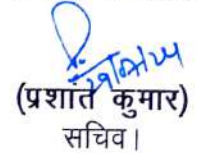 (प्रशांत कुमार)
सचिव।